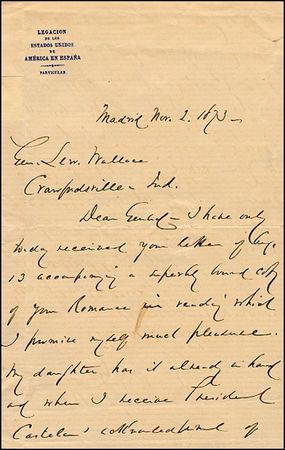 LEGACION
DE LOS
ESTADOS UNIDOS
DE
AMÉRICA EN ESPAÑA
PARTICULAR.
Madrid Nov. 2. 1873 -
Gen. Lew. Wallace
Crawfordsville - Ind.
Dear General - I have only
today received your letter of Aug.
13 accompanying a superbly bound copy
of your Romance in reading which
I promise myself much pleasure.
My daughter has it already in hand
and when I receive President
Castelar's acknowledgment of